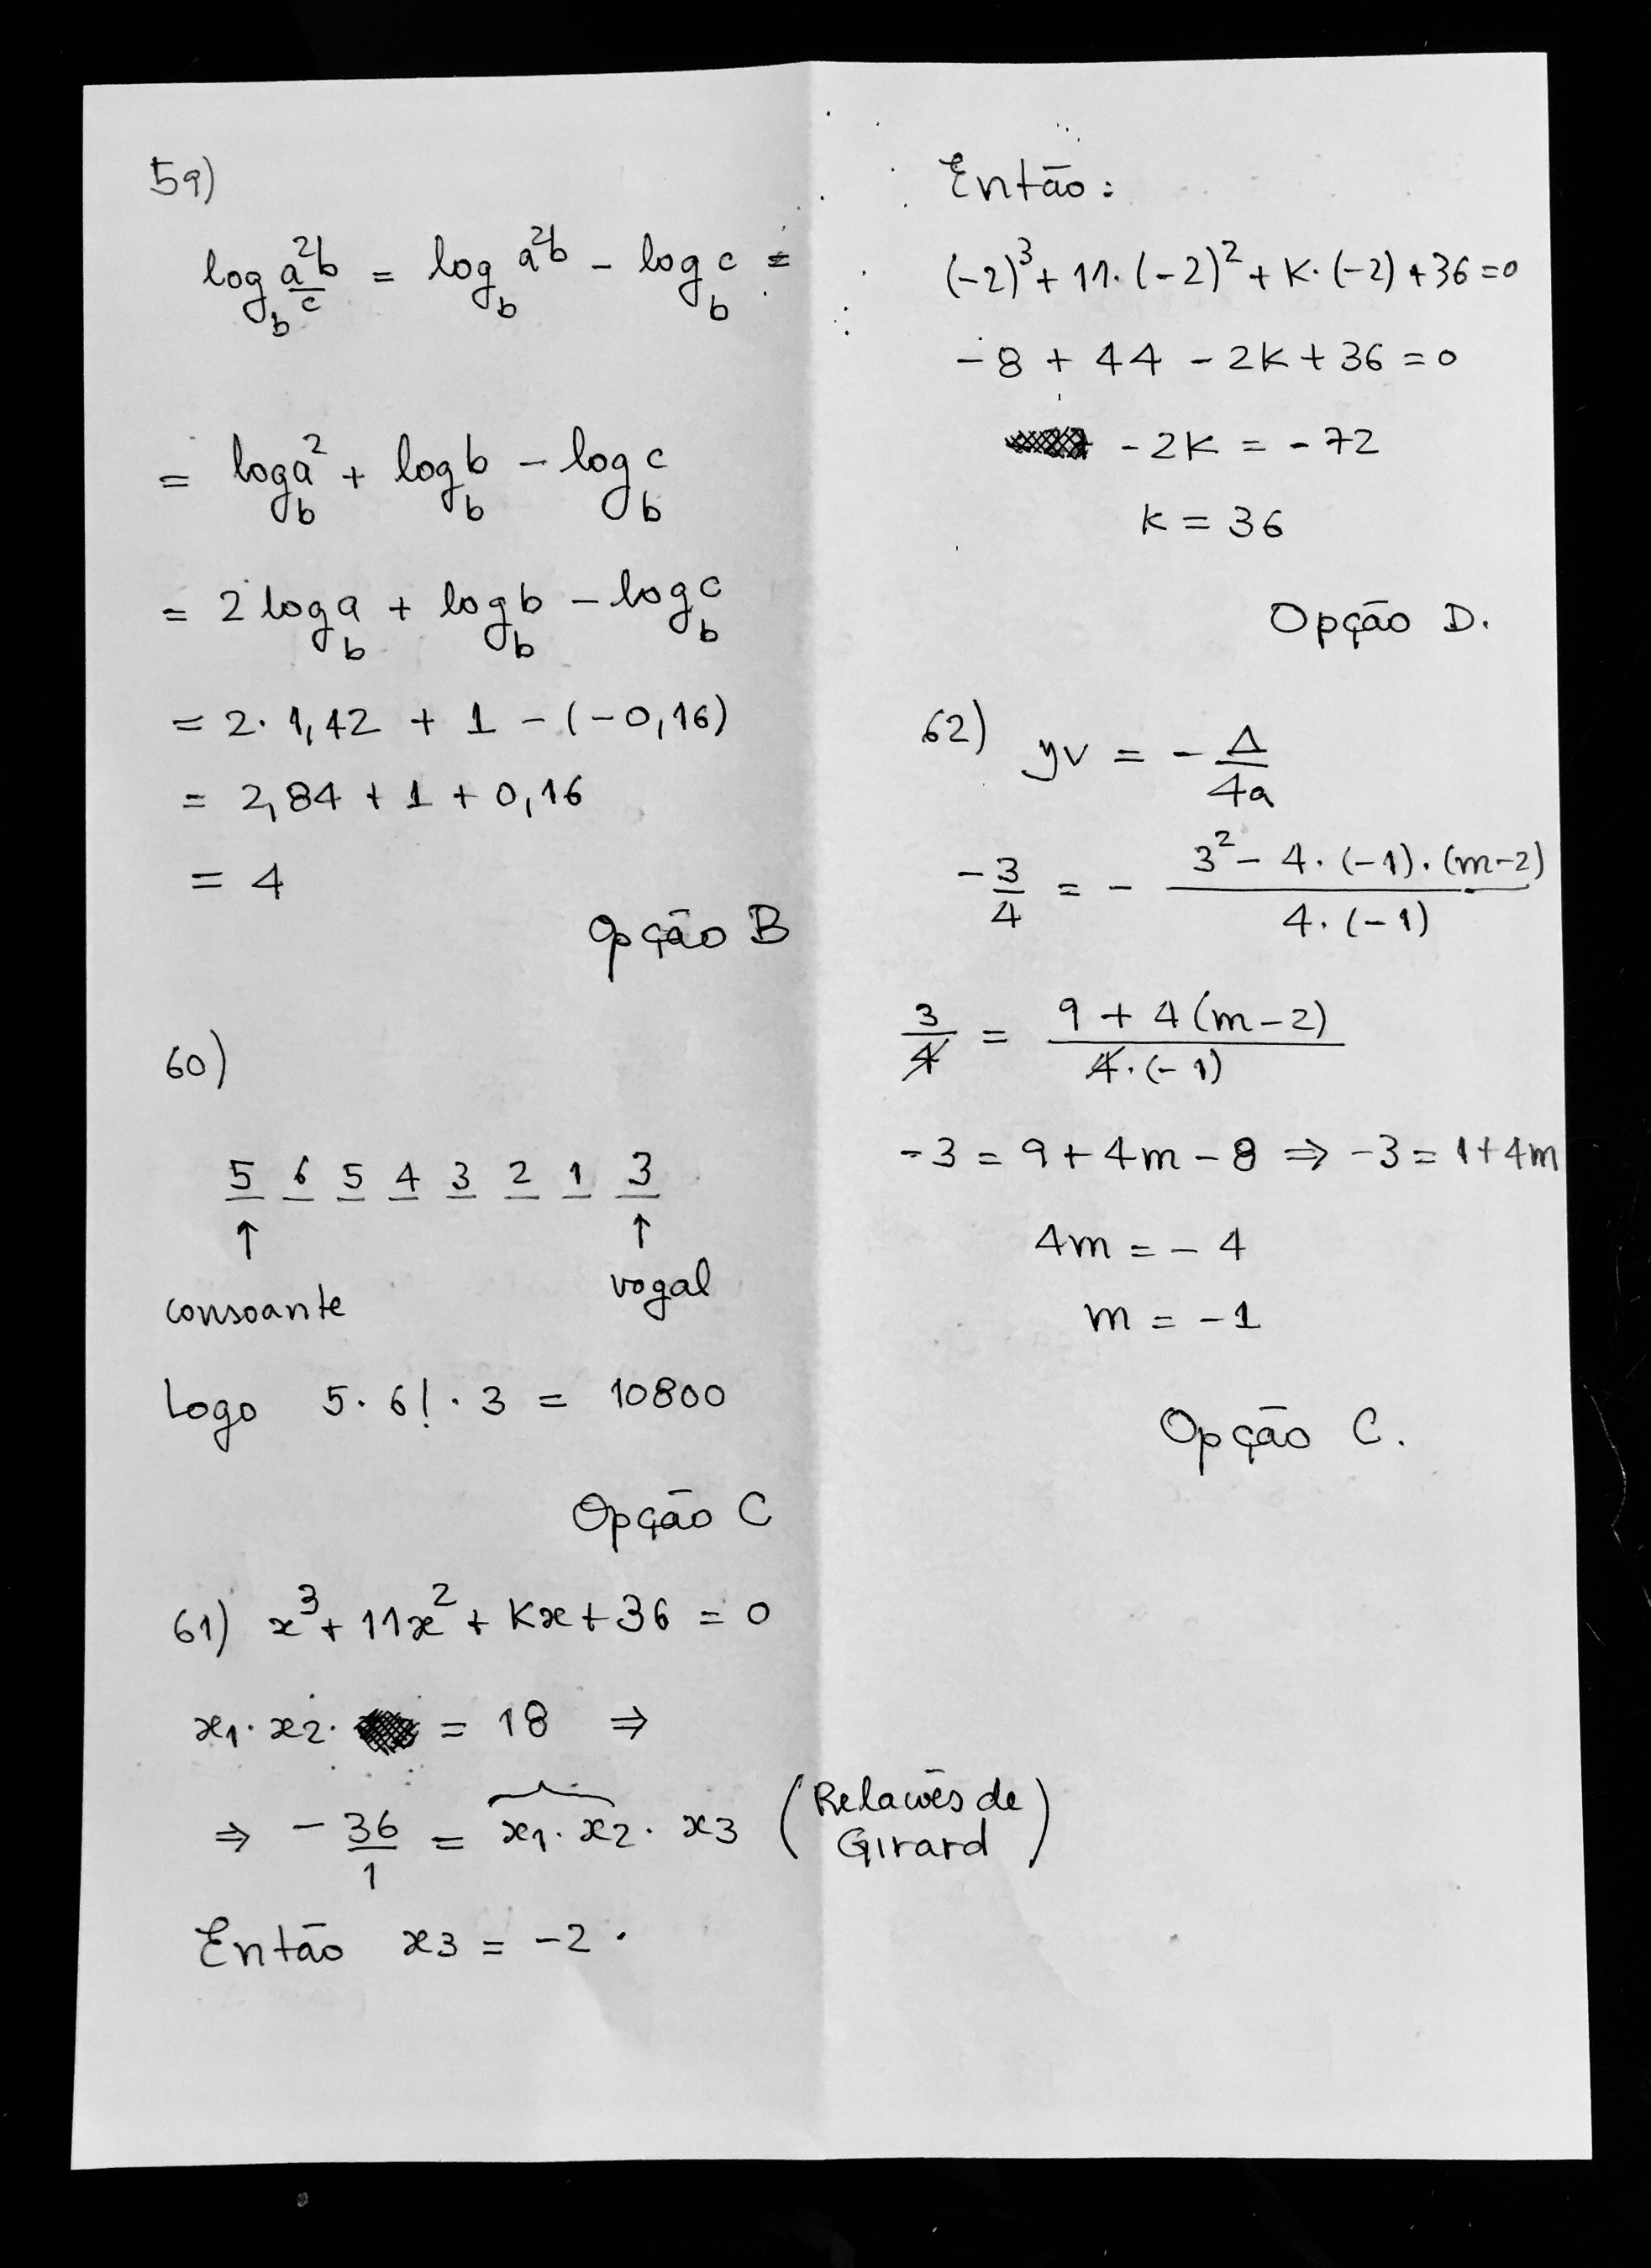 59)
log_b a²b/c = log_b a²b - log_b c =
= log_b a² + log_b b - log_b c
= 2 log_b a + log_b b - log_b c
= 2 · 1,42 + 1 - (-0,16)
= 2,84 + 1 + 0,16
= 4
Opção B
60)
5 6 5 4 3 2 1 3
↑ ↑
consoante vogal
Logo 5 · 6! · 3 = 10800
Opção C
61) x³ + 11x² + Kx + 36 = 0
x1 · x2 · = 18 ⇒
⇒ - 36/1 = x1 · x2 · x3 (Relações de
Girard)
Então x3 = -2 .
Então:
(-2)³ + 11 · (-2)² + K · (-2) + 36 = 0
- 8 + 44 - 2K + 36 = 0
- 2K = - 72
K = 36
Opção D.
62) yv = - Δ/4a
- 3/4 = - 3² - 4 · (-1) · (m-2) / 4 · (-1)
3/4 = 9 + 4(m-2) / 4 · (-1)
-3 = 9 + 4m - 8 ⇒ -3 = 1 + 4m
4m = - 4
m = - 1
Opção C.